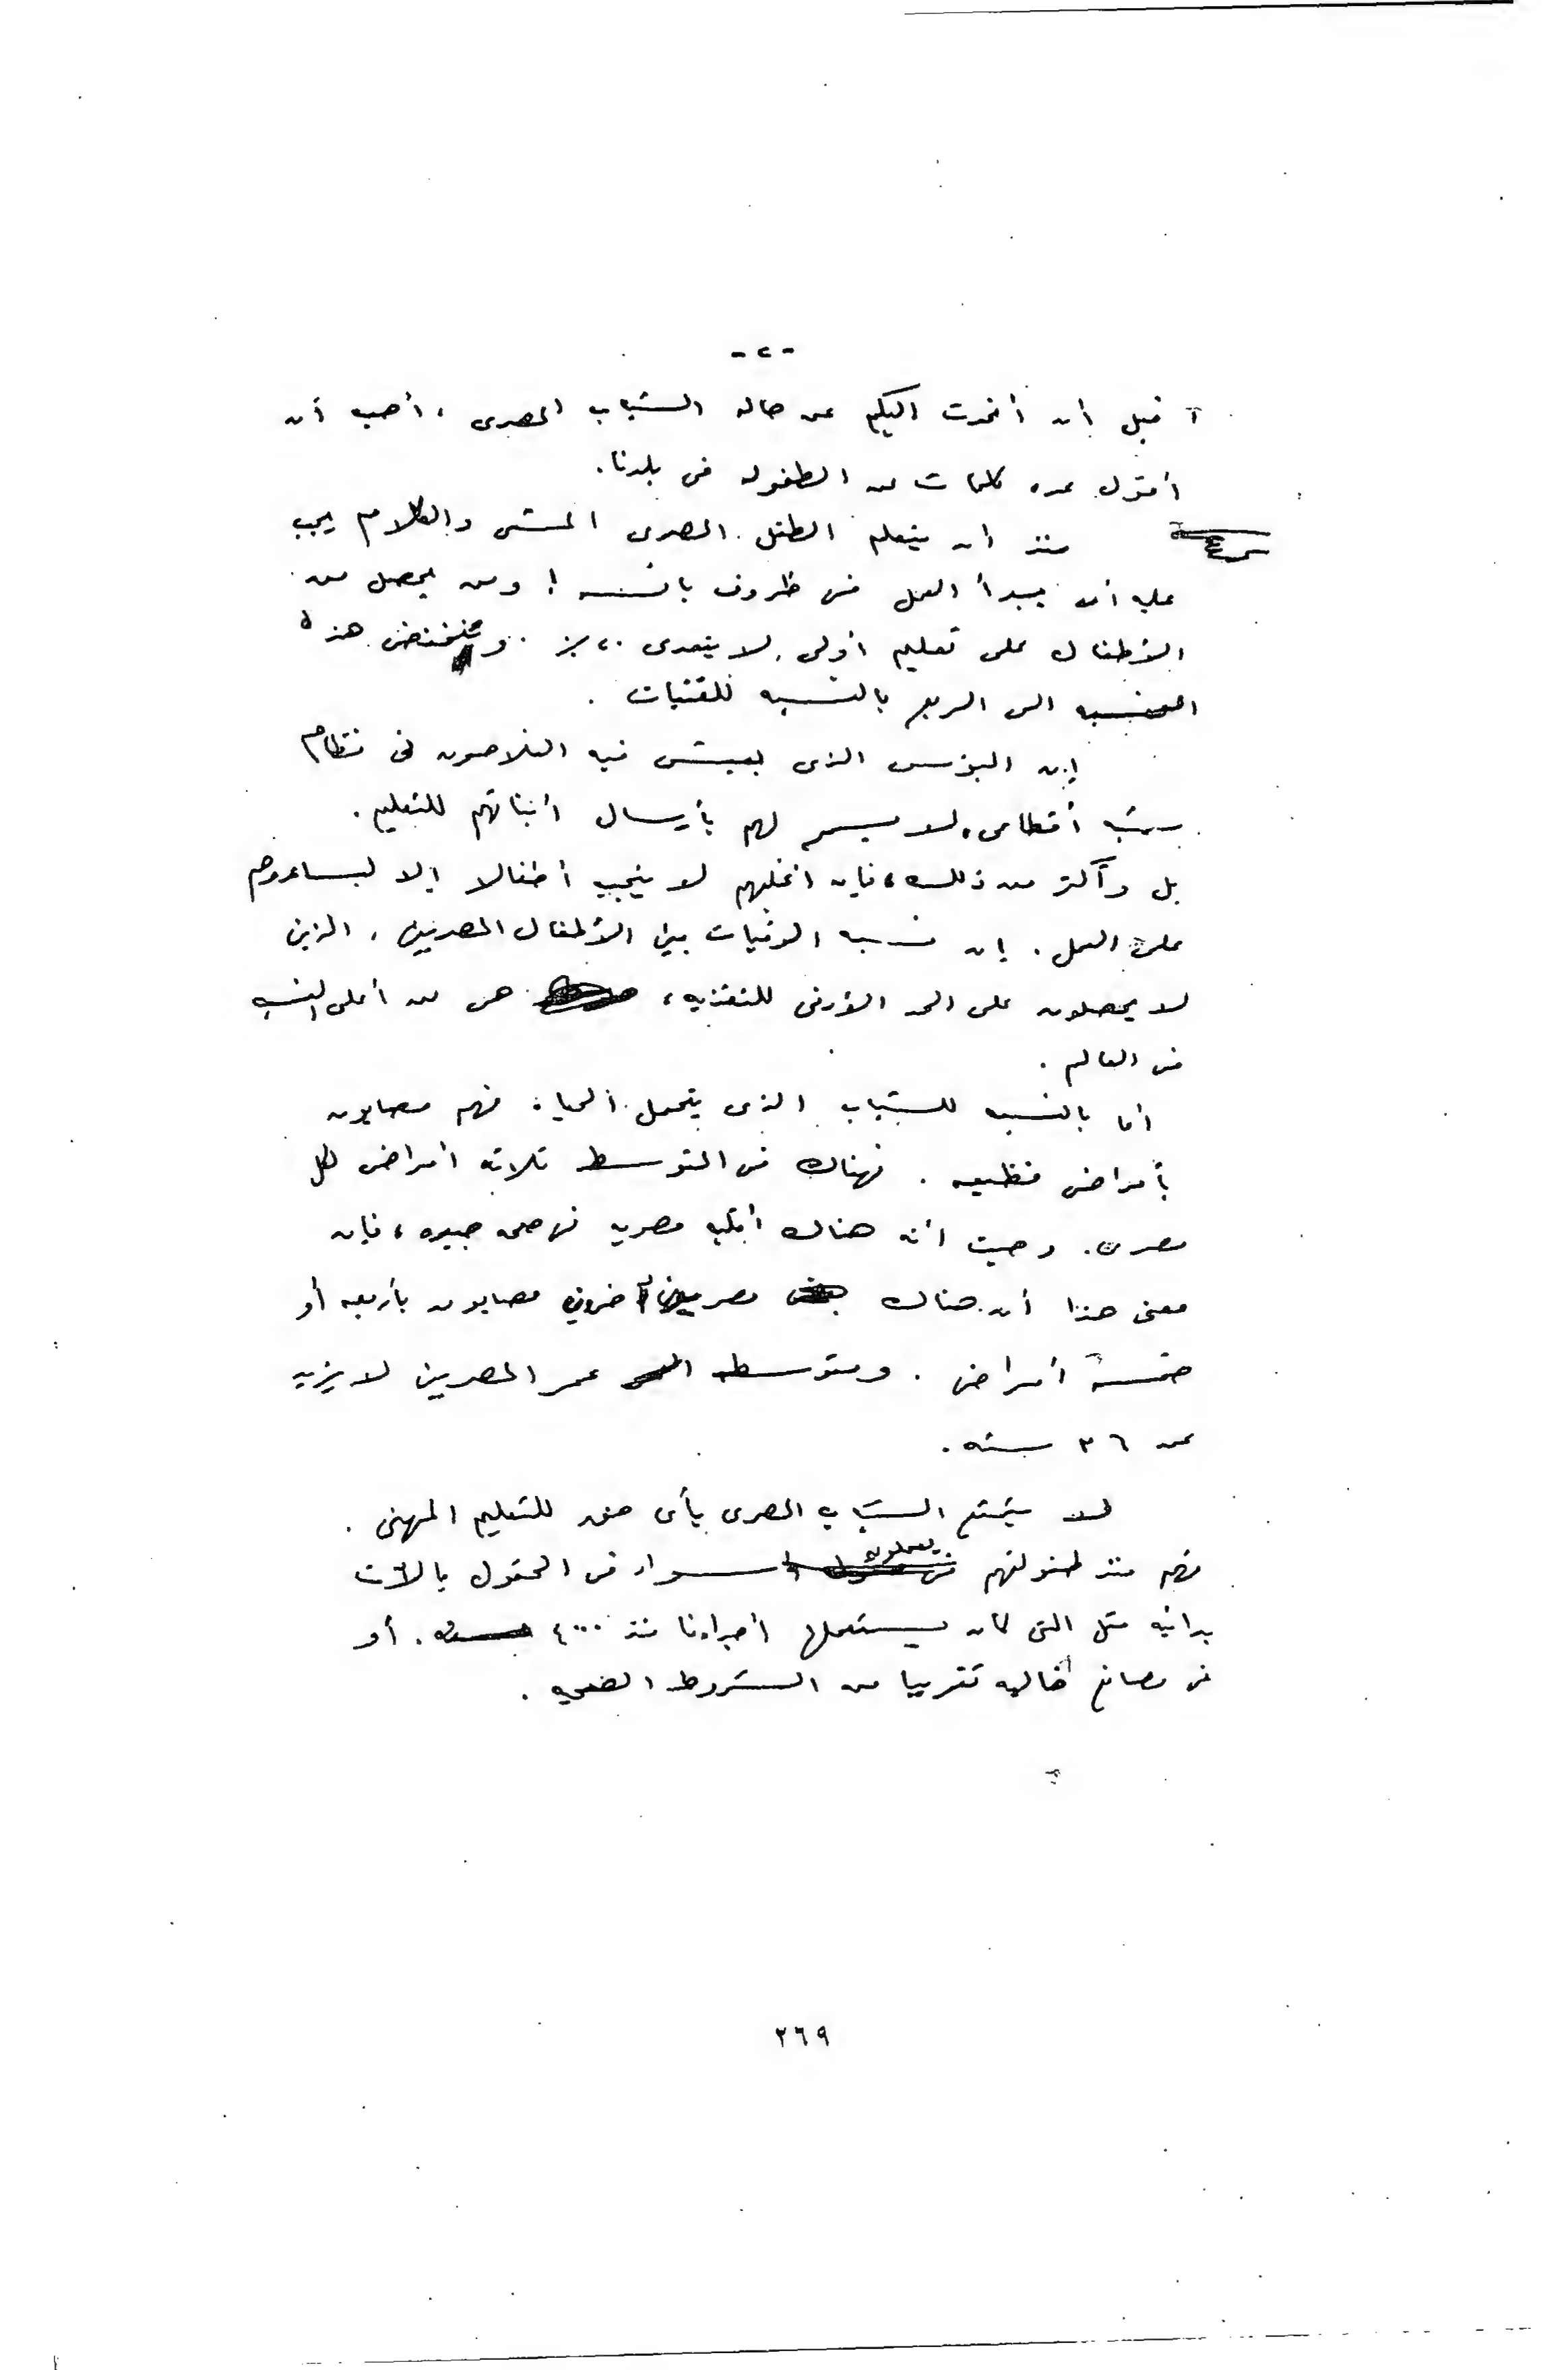 - ٢ -
قبل أن أتحدث اليكم عن حاله الشباب المصرى ، أحب أن
أقول عده كلمات عن الطفوله فى بلدنا .
منذ أن يتعلم الطفل المصرى المشى والكلام يجب
عليه أن يبدأ العمل فى ظروف بائسه ! ومن يحصل من
الأطفال على تعليم أولى لا يتعدى ٢٠٪ . وتنخفض هذه
النسبه الى الربع بالنسبه للفتيات .
إن البؤس الذى يعيش فيه الفلاحون فى نظام
شبه أقطاعى ، لا يسمح لهم بأرسال أبنائهم للتعليم .
بل وأكثر من ذلك ، فإن أغلبهم لا ينجب أطفالا إلا ليساعدوهم
على العمل . إن نسبه الوفيات بين الأطفال المصريين ، الذين
لا يحصلون على الحد الأدنى للتغذيه ، هى من أعلى النسب
فى العالم .
أما بالنسبه للشباب الذى يتحمل الحياه فهم مصابون
بأمراض فظيعه . فهناك فى المتوسط ثلاثه أمراض لكل
مصرى . وحيث أنه هناك أقليه مصريه فى صحه جيده ، فإن
معنى هذا أن هناك مصريين آخرين مصابون بأربعه أو
خمسة أمراض . ومتوسط عمر المصريين لا يزيد
عن ٣٦ سنه .
لا يتمتع الشباب المصرى بأى حق للتعليم المهنى .
فهم منذ طفولتهم يعملون سواء فى الحقول بالآت
بدائيه مثل التى كان يستعملها أجدادنا منذ ٤٠٠٠ سنه . أو
فى مصانع خاليه تقريبا من الشروط الصحيه .
٢٦٩